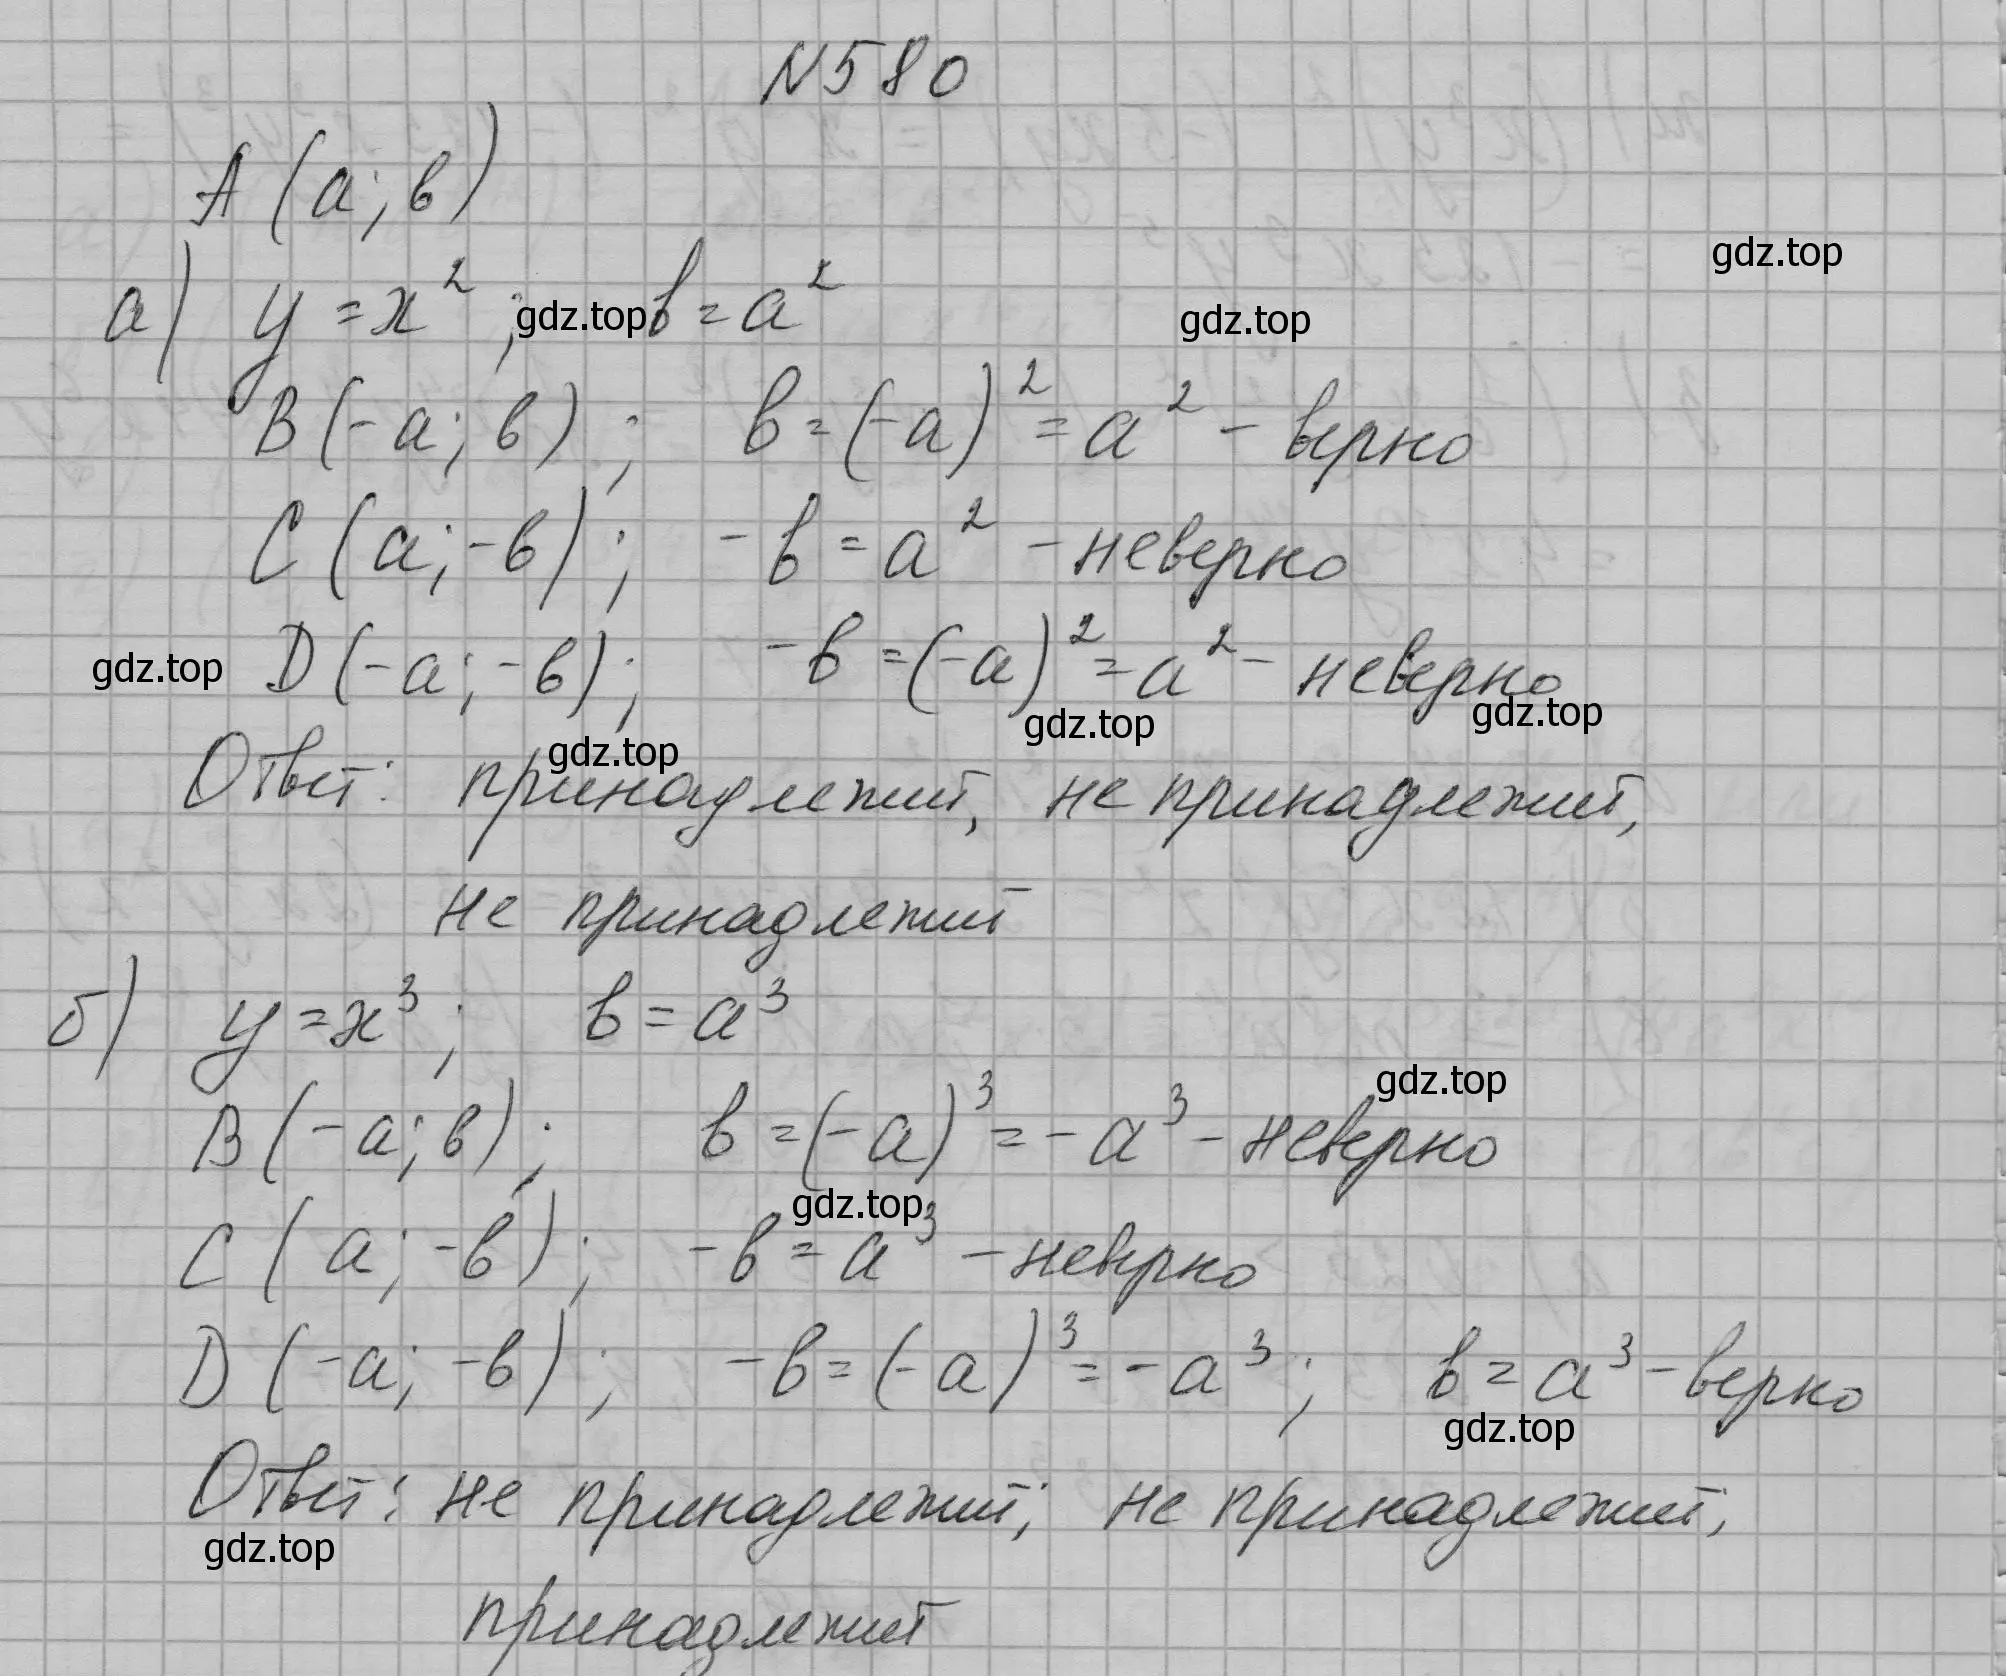 N580
A (a; в)
а) y = x²; в = a²
B (-a; в); в = (-a)² = a² - верно
C (a; -в); -в = a² - неверно
D (-a; -в); -в = (-a)² = a² - неверно
Ответ: принадлежит, не принадлежит,
не принадлежит
б) y = x³; в = a³
B (-a; в); в = (-a)³ = -a³ - неверно
C (a; -в); -в = a³ - неверно
D (-a; -в); -в = (-a)³ = -a³; в = a³ - верно
Ответ: не принадлежит; не принадлежит;
принадлежит
gdz.top
gdz.top
gdz.top
gdz.top
gdz.top
gdz.top
gdz.top
gdz.top
gdz.top
gdz.top
gdz.top